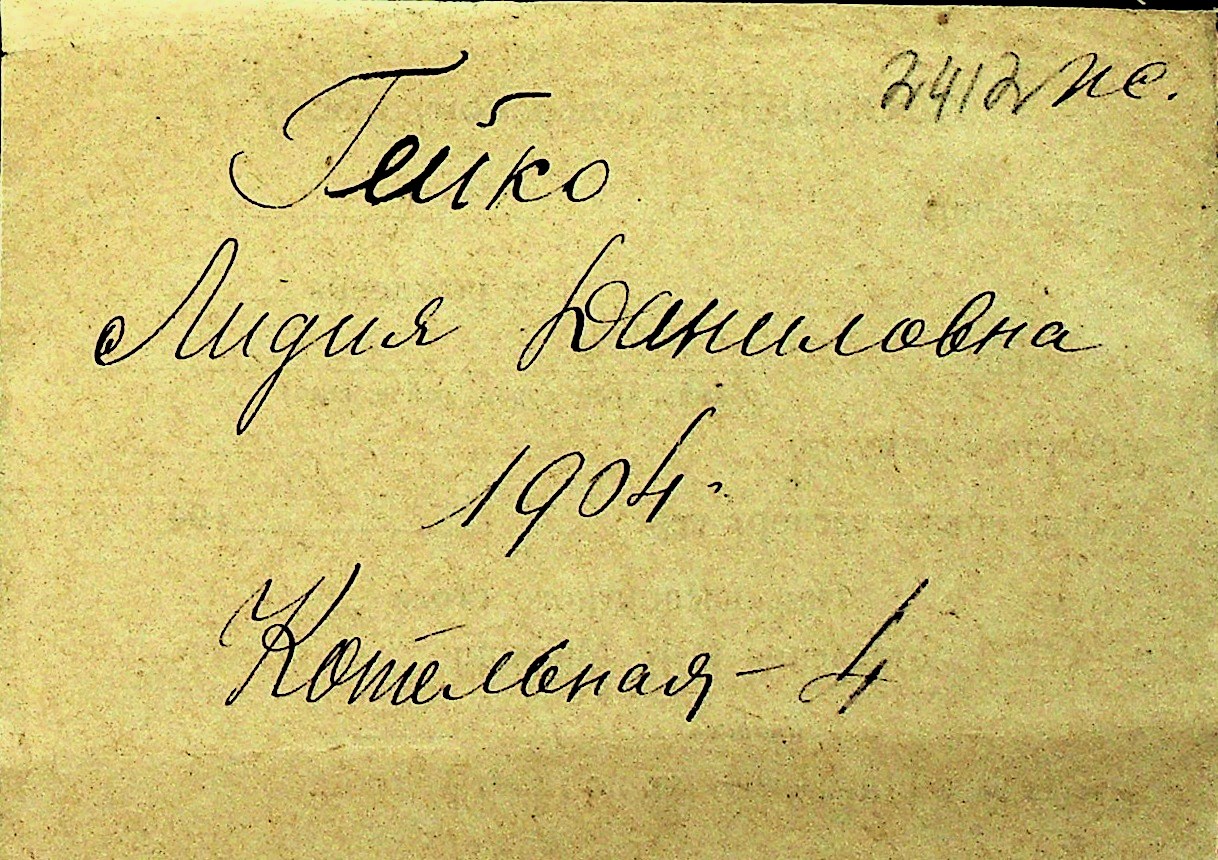 2412 пс.
Гейко
Лидия Даниловна
1904.
Котельная – 4